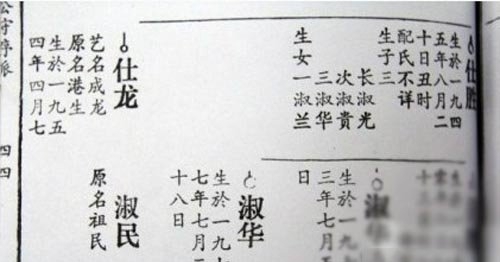 仕胜
生於一九四
五年八月二
十日丑时
配氏不详
生子三
长淑光
次淑貴
三淑华
生女一淑兰
仕龙
艺名成龙
原名港生
生於一九五
四年四月七
淑
生於一九七
三年七月
日
淑华
生於一九七
七年七月二
十八日
淑民
原名祖民
四四